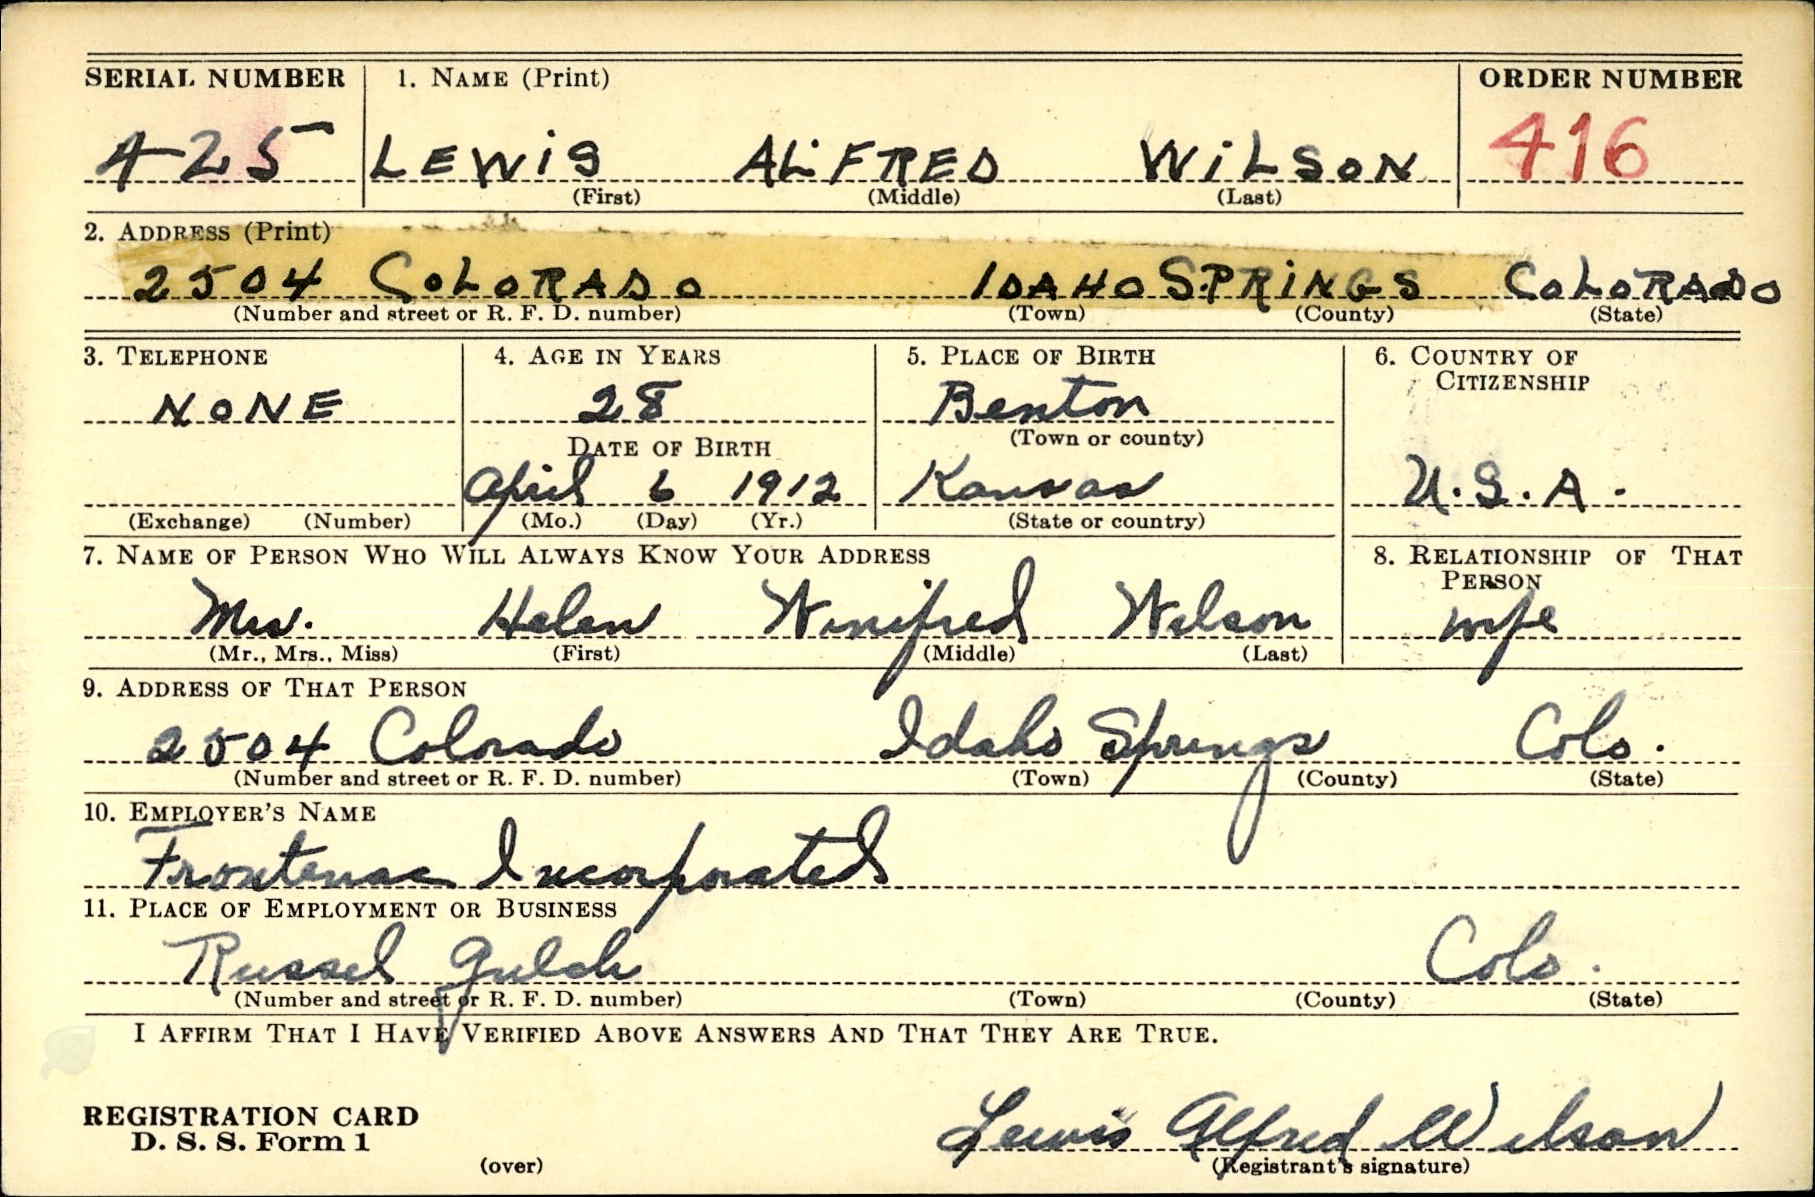 SERIAL NUMBER 1. NAME (Print) ORDER NUMBER
425 LEWIS ALFRED WILSON 416
(First) (Middle) (Last)
2. ADDRESS (Print)
2504 COLORADO IDAHO SPRINGS COLORADO
(Number and street or R. F. D. number) (Town) (County) (State)
3. TELEPHONE 4. AGE IN YEARS 5. PLACE OF BIRTH 6. COUNTRY OF
CITIZENSHIP
NONE 28 Benton
DATE OF BIRTH (Town or county)
April 6 1912 Kansas U.S.A.
(Exchange) (Number) (Mo.) (Day) (Yr.) (State or country)
7. NAME OF PERSON WHO WILL ALWAYS KNOW YOUR ADDRESS 8. RELATIONSHIP OF THAT
PERSON
Mrs. Helen Winifred Wilson wife
(Mr., Mrs., Miss) (First) (Middle) (Last)
9. ADDRESS OF THAT PERSON
2504 Colorado Idaho Springs Colo.
(Number and street or R. F. D. number) (Town) (County) (State)
10. EMPLOYER'S NAME
Frontenac Incorporated
11. PLACE OF EMPLOYMENT OR BUSINESS
Russel Gulch Colo.
(Number and street or R. F. D. number) (Town) (County) (State)
I AFFIRM THAT I HAVE VERIFIED ABOVE ANSWERS AND THAT THEY ARE TRUE.
REGISTRATION CARD
D. S. S. Form 1 Lewis Alfred Wilson
(over) (Registrant's signature)